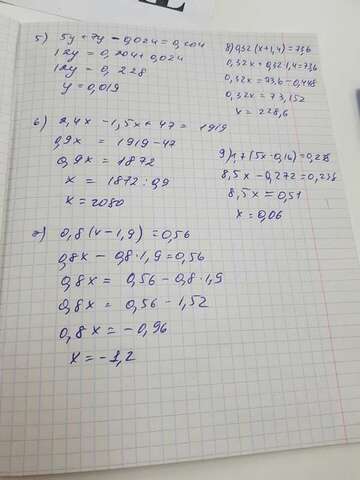 5) 5y + 7y - 0,024 = 0,204
12y = 0,204 + 0,024
12y = 0,228
y = 0,019
6) 2,4x - 1,5x + 47 = 1919
0,9x = 1919 - 47
0,9x = 1872
x = 1872 : 0,9
x = 2080
7) 0,8(x - 1,9) = 0,56
0,8x - 0,8·1,9 = 0,56
0,8x = 0,56 - 0,8·1,9
0,8x = 0,56 - 1,52
0,8x = -0,96
x = -1,2
8) 0,32(x + 1,4) = 73,6
0,32x + 0,32·1,4 = 73,6
0,32x = 73,6 - 0,448
0,32x = 73,152
x = 228,6
9) 1,7(5x - 0,16) = 0,238
8,5x - 0,272 = 0,238
8,5x = 0,51
x = 0,06